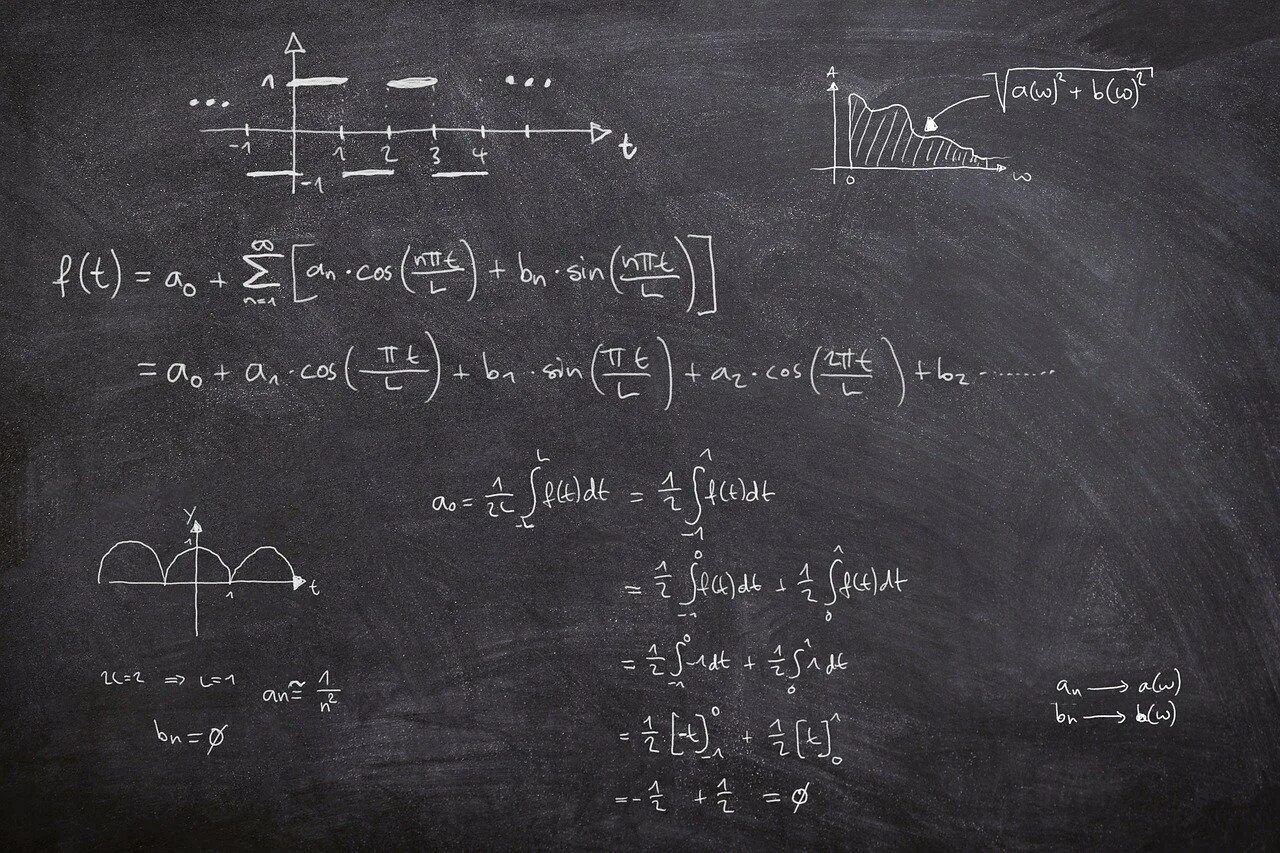 1 ... ...
-1 1 2 3 4 t
-1
A √(a(ω)² + b(ω)²)
0 ω
f(t) = a₀ + ∑ₙ₌₁^∞ [aₙ·cos(nπt/L) + bₙ·sin(nπt/L)]
= a₀ + a₁·cos(πt/L) + b₁·sin(πt/L) + a₂·cos(2πt/L) + b₂ ........
a₀ = 1/2L ∫₋L^L f(t)dt = 1/2 ∫₋₁^1 f(t)dt
= 1/2 ∫₋₁^0 f(t)dt + 1/2 ∫₀^1 f(t)dt
= 1/2 ∫₋₁^0 -1dt + 1/2 ∫₀^1 1dt
= 1/2 [-t]₋₁^0 + 1/2 [t]₀^1
= -1/2 + 1/2 = ∅
y
1
t
1
2L=2 ⇒ L=1 aₙ ≅ 1/n²
bₙ = ∅
aₙ → a(ω)
bₙ → b(ω)